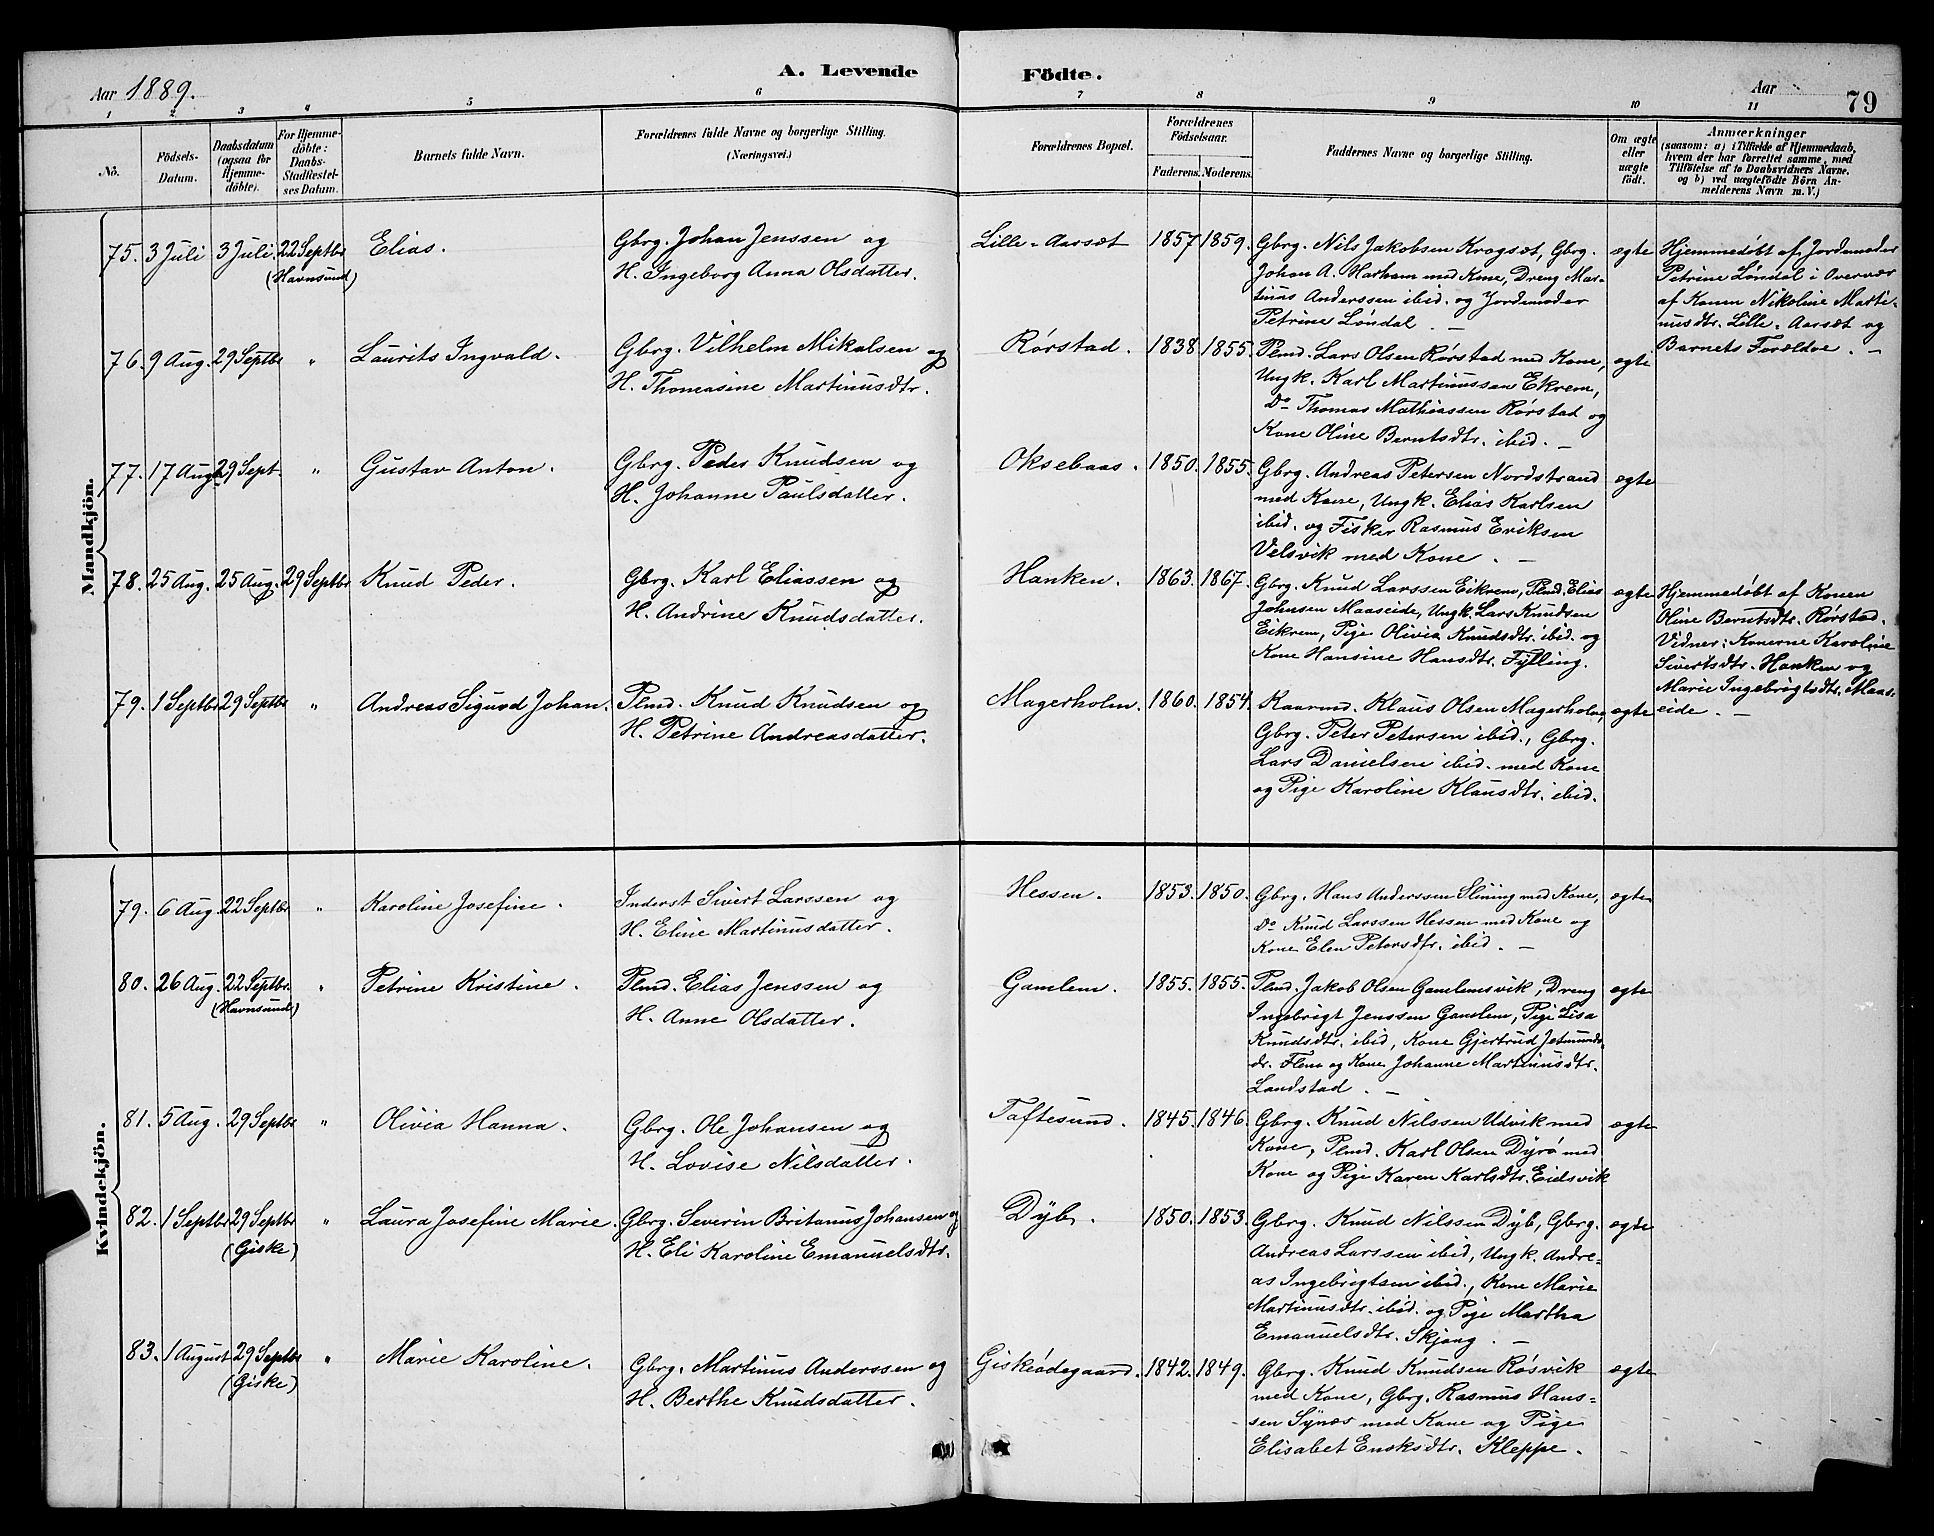 A. Levende Födte.
Aar 1889.
Aar
79
1 2 3 4 5 6 7 8 9 10 11
No.
Födsels-Datum.
Daabsdatum (ogsaa for Hjemme-döbte).
For Hjemme-döbte: Daabs-Stadfæstel-ses Datum.
Barnets fulde Navn.
Forældrenes fulde Navne og borgerlige Stilling.
(Næringsvei.)
Forældrenes Bopæl.
Forældrenes Födselsaar.
Faderens. Moderens.
Faddernes Navne og borgerlige Stilling.
Om ægte eller uægte födt.
Anmærkninger
(saasom: a) i Tilfælde af Hjemmedaab,
hvem der har forrettet samme, med
Tilföielse af to Daabsvidners Navne,
og b) ved uægtefödte Börn An-
melderens Navn m. V.)
Mandkjön.
75. 3 Juli 3 Juli 22 Septbr (Havnsund) Elias.
Gbrg. Johan Jenssen og
H. Ingeborg Anna Olsdatter.
Lille-Aarsæt 1857 1859.
Gbrg. Nils Jakobsen Krogsæt, Gbrg.
Johan A. Harham med Kone, Dreng Mar-
tinus Anderssen ibid. og Jordemoder
Petrine Løndal. —
ægte
Hjemmedøbt af Jordemoder
Petrine Løndal i Overvær
af Konen Nikoline Marti-
nusdtr. Lille-Aarsæt og
Barnets Forældre. —
76. 9 Aug. 29 Septbr " Laurits Ingvald.
Gbrg. Vilhelm Mikalsen og
H. Thomasine Martinusdtr.
Rørstad. 1838 1855.
Plmd. Lars Olsen Rørstad med Kone,
Ungk. Karl Martinussen Ekrem,
Do Thomas Mathiassen Rørstad og
Kone Oline Berntsdtr. ibid. —
ægte
77. 17 Aug. 29 Sept. " Gustav Anton.
Gbrg. Peder Knudsen og
H. Johanne Paulsdatter.
Oksebaas. 1850. 1855.
Gbrg. Andreas Petersen Nordstrand
med Kone, Ungk. Elias Karlsen
ibid. og Fisker Rasmus Eriksen
Velsvik med Kone. —
ægte
78. 25 Aug. 25 Aug. 29 Septbr Knud Peder.
Gbrg. Karl Eliassen og
H. Andrine Knudsdatter.
Hanken. 1863. 1867.
Gbrg. Knud Larssen Eikrem, Plmd. Elias
Johnsen Maaseide, Ungk. Lars Knudsen
Eikrem, Pige Olivia Knudsdtr. ibid. og
Kone Hansine Hansdtr. Fylling.
ægte
Hjemmedøbt af Konen
Oline Berntsdtr. Rørstad.
Vidner: Konerne Karoline
Sivertsdtr. Hanken og
Marie Ingebrigtsdtr. Maas-
eide. —
79. 1 Septbr 29 Septbr " Andreas Sigurd Johan.
Plmd. Knud Knudsen og
H. Petrine Andreasdatter.
Magerholm. 1860. 1854.
Kaarmd. Klaus Olsen Magerholm,
Gbrg. Peter Petersen ibid., Gbrg.
Lars Danielsen ibid. med Kone
og Pige Karoline Klausdtr. ibid.
ægte
Kvindekjön.
79. 6 Aug. 22 Septbr " Karoline Josefine.
Inderst Sivert Larssen og
H. Eline Martinusdatter.
Hessen. 1853. 1850.
Gbrg. Hans Anderssen Slining med Kone,
Do Knud Larssen Hessen med Kone og
Kone Elen Petersdtr. ibid. —
ægte
80. 26 Aug. 22 Septbr. (Havnsund) " Petrine Kristine.
Plmd. Elias Jenssen og
H. Anne Olsdatter.
Gamlem. 1855. 1855.
Plmd. Jakob Olsen Gamlemsvik, Dreng
Ingebrigt Jenssen Gamlem, Pige Lisa
Knudsdtr. ibid, Kone Gjertrud Jetmunds-
dr. Flem og Kone Johanne Martinusdtr.
Landstad. —
ægte
81. 5 Aug. 29 Septbr " Olivia Hanna.
Gbrg. Ole Johansen og
H. Lovise Nilsdatter.
Taftesund. 1845. 1846.
Gbrg. Knud Nilssen Udvik med
Kone, Plmd. Karl Olsen Dyrø med
Kone og Pige Karen Karlsdtr. Eidsvik
ægte
82. 1 Septbr 29 Septbr (Giske) " Laura Josefine Marie.
Gbrg. Severin Britanus Johansen og
H. Eli Karoline Emanuelsdtr.
Dyb. 1850. 1853.
Gbrg. Knud Nilssen Dyb, Gbrg.
Andreas Larssen ibid, Ungk. Andre-
as Ingebrigtsen ibid., Kone Marie
Martinusdtr. ibid. og Pige Martha
Emanuelsdtr. Skjong. —
ægte
83. 1 August 29 Septbr (Giske) " Marie Karoline.
Gbrg. Martinus Anderssen og
H. Berthe Knudsdatter.
Giskeødegaard. 1842. 1849.
Gbrg. Knud Knudsen Røsvik
med Kone, Gbrg. Rasmus Hans-
sen Synæs med Kone og Pige
Elisabet Enoksdtr. Kleppe.
ægte